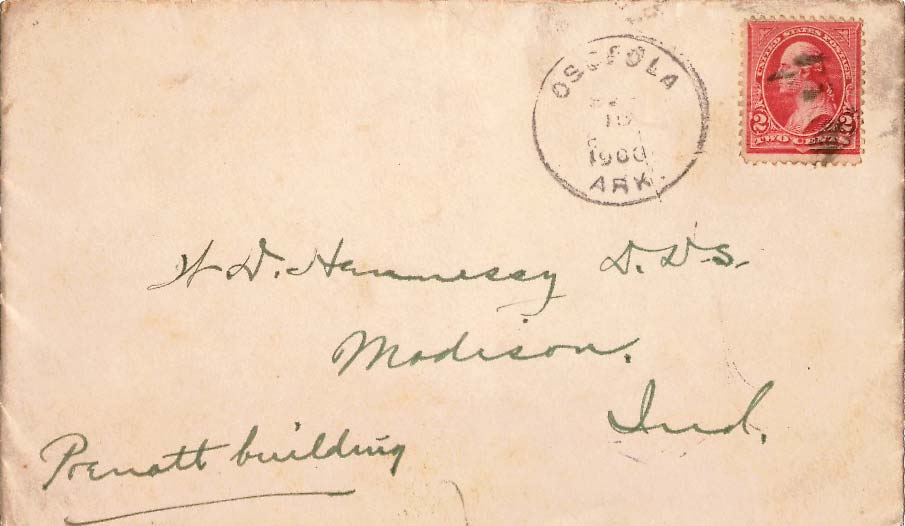 OSCEOLA
18
1900
ARK.
UNITED STATES POSTAGE
2 2
TWO CENTS
H. D. Hennessy D.D.S.
Madison,
Ind.
Prenatt building